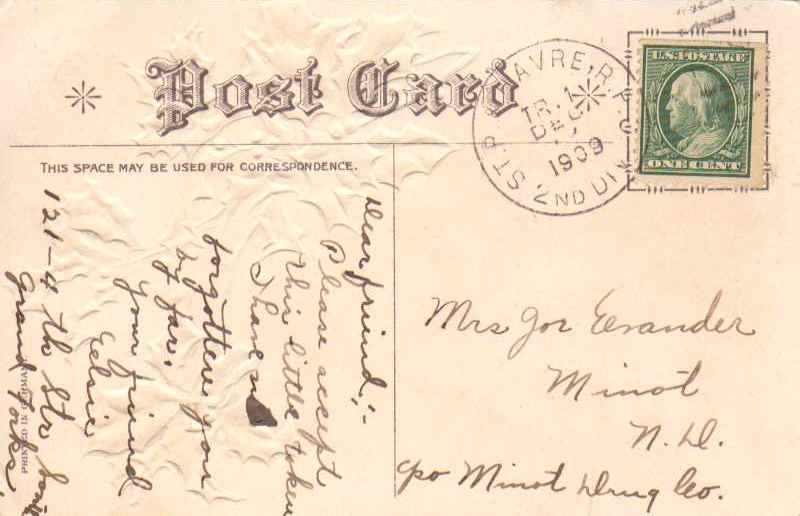 Post Card
THIS SPACE MAY BE USED FOR CORRESPONDENCE.
U.S. POSTAGE
ONE CENT
ST.P. HAVRE, R.P.O. 2ND DIV.
TR. 1
DEC
1909
Dear friend;-
Please accept
this little token
I have
forgotten you
by far.
Your friend
Elsie
121-4 th Str
Grand Forks.
Mrs Joe Evander
Minot
N. D.
c/o Minot Drug Co.
PRINTED IN GERMANY